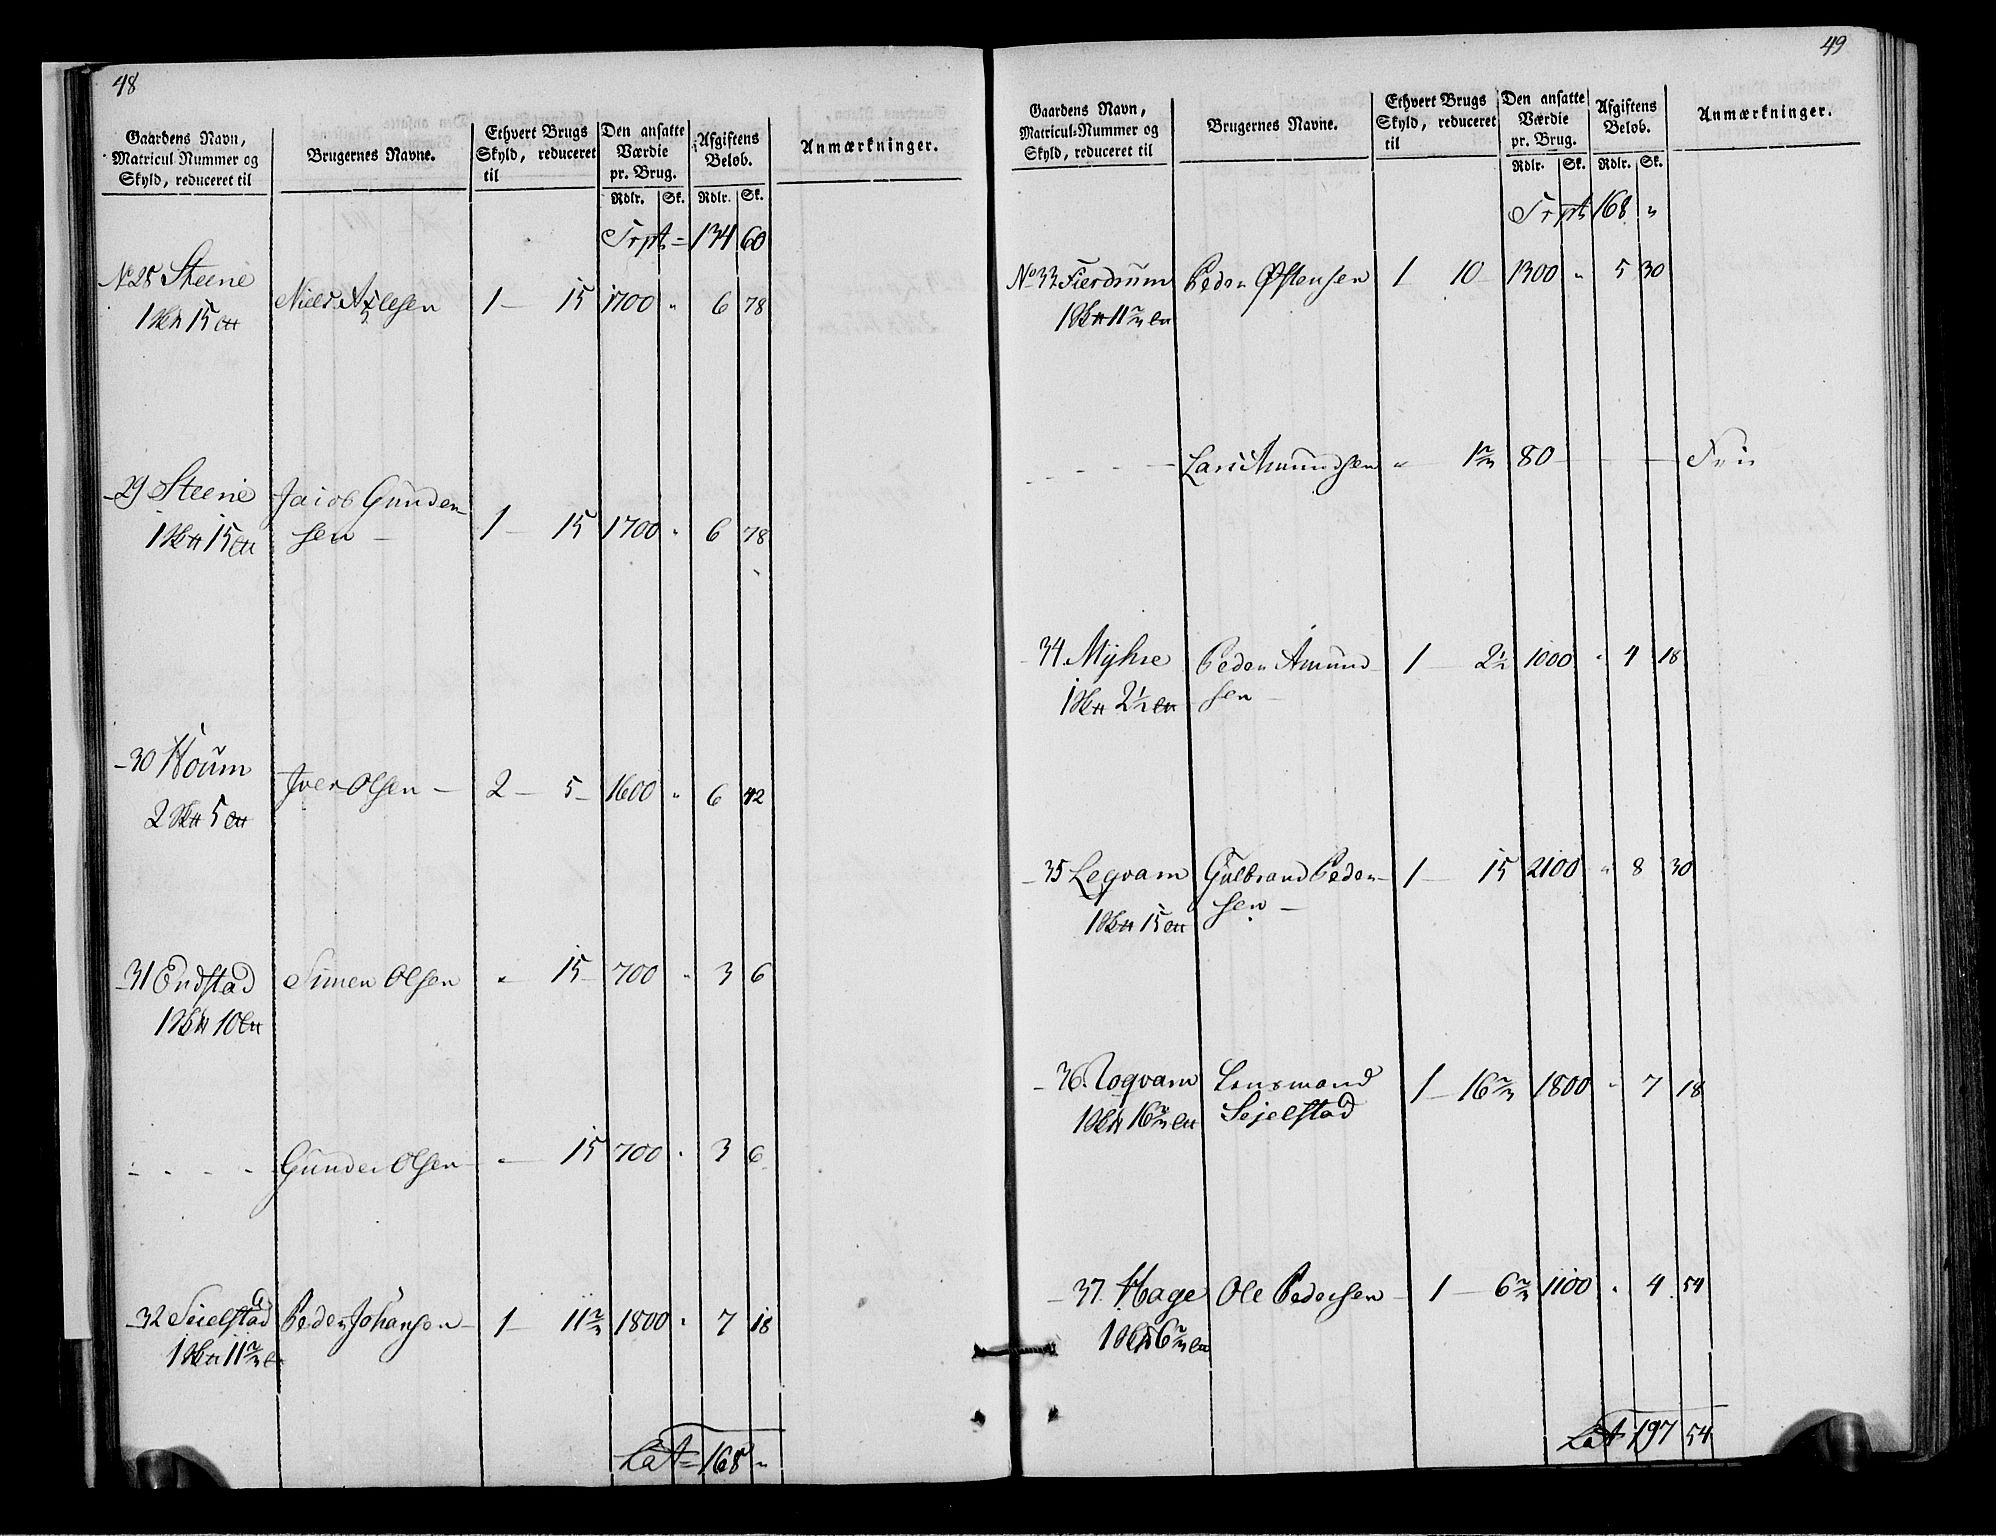 48
Gaardens Navn, Matricul Nummer og Skyld, reduceret til
Brugernes Navne.
Ethvert Brugs Skyld, reduceret til
Den ansatte Værdie pr. Brug.
Afgiftens Beløb.
Anmærkninger.
Rdlr. Sk. Rdlr. Sk.
Trpt = 134 60
No 28 Steene Niels Aslesen 1 — 15 1700 " 6 78
1 15
29 Steene Jacob Gunder-
1 15 sen — 1 — 15 1700 " 6 78
30 Houm Iver Olsen — 2 — 5 — 1600 " 6 42
2 5
31 Endstad Simen Olsen " 15 — 700 " 3 6
1 10
- - - - Gunder Olsen " — 15 700 " 3 6
32 Seielstad Peder Johansen — 1 — 11 2/3 1800 " 7 18
1 11 2/3
Lat = 168 "
49
Gaardens Navn, Matricul-Nummer og Skyld, reduceret til
Brugernes Navne.
Ethvert Brugs Skyld, reduceret til
Den ansatte Værdie pr. Brug.
Afgiftens Beløb.
Anmærkninger.
Rdlr. Sk. Rdlr. Sk.
Trpt 168 "
No 33 Fierdrum Peder Østensen 1 10 1300 " 5 30
1 11 2/3
- - - - Lars Amundsen " 1 2/3 80 — — — Frie
34 Myhre Peder Amund- 1 — 2 1/2 1000 " 4 18
1 2 1/2 sen —
35 Leqvam Gulbrand Peder- 1 — 15 2100 " 8 30
1 15 sen —
36 Noqvam Lensmand 1 — 16 2/3 1800 " 7 18
1 16 2/3 Sejelstad
37. Hage Ole Pedersen — 1 — 6 2/3 1100 " 4 54
1 6 2/3
Lat 197 54